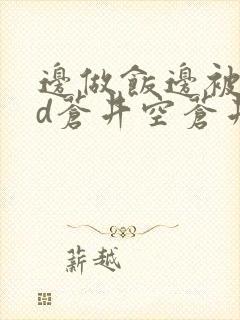 邊做飯邊被
d蒼井空蒼井
薪越